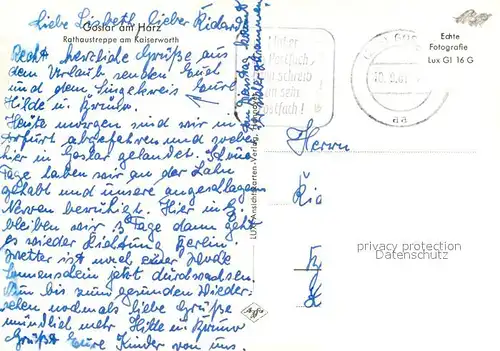 Liebe Liesbeth, lieber Richard!
Goslar am Harz
Rathaustreppe am Kaiserworth
Recht herzliche Grüße aus
dem Urlaub senden Euch
und dem Singekreis Eure
Hilde u. Bruno.
Heute morgen sind wir in
abgefahren und soeben
hier in Goslar gelandet. Schöne
Tage haben wir an der Lahn
gehabt und unsere angeschlagenen
Nerven beruhigt. Hier in G.
bleiben wir 3 Tage dann geht
es wieder Richtung Berlin
Wetter ist nach einer Woche
Sonnenschein jetzt durchwachsen.
Nun bis zum gesunden Wieder-
sehen nochmals liebe Grüße
mündlich mehr Hilde u. Bruno
Grüßt Eure Kinder von uns.
LUX Ansichtskarten-Verlag,
Postfach,
schreib
sein
Postfach!
10.9.
aa
Echte
Fotografie
Lux Gl 16 G
Herrn
privacy protection
Datenschutz